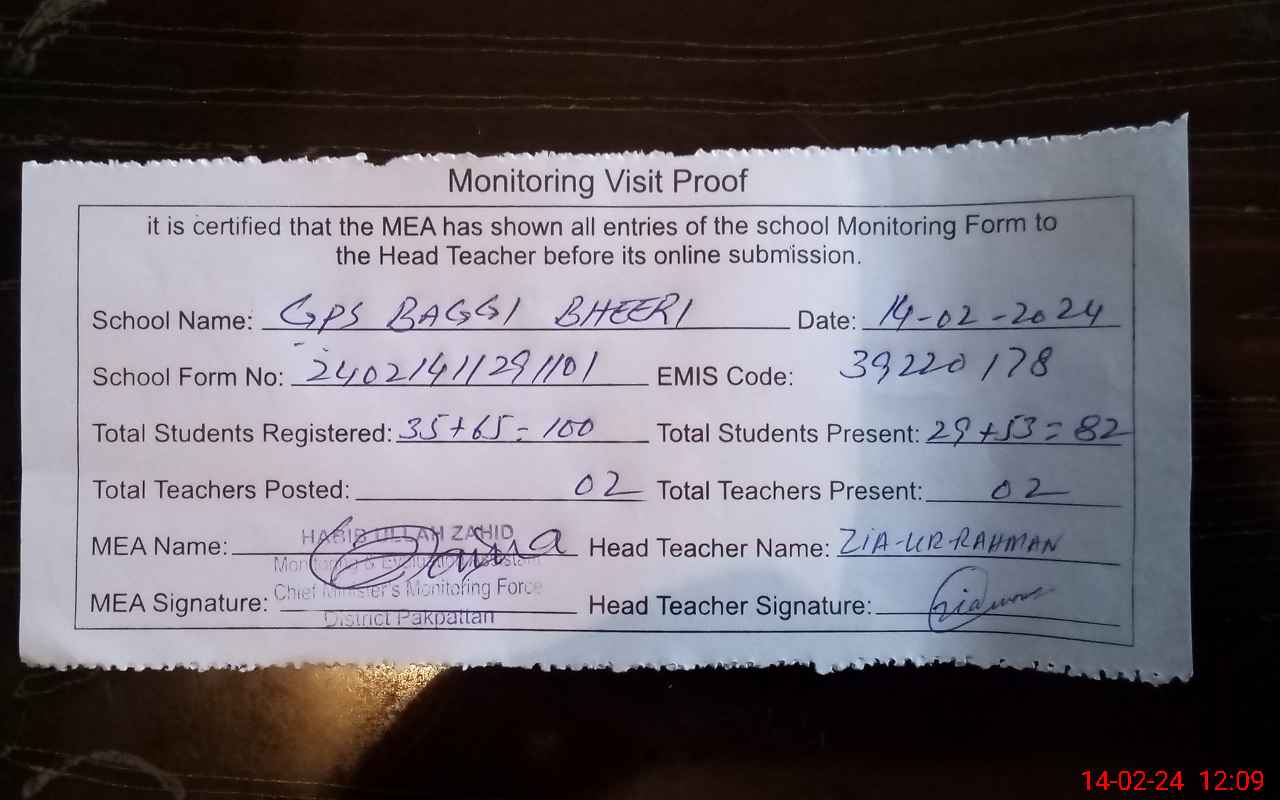 Monitoring Visit Proof
it is certified that the MEA has shown all entries of the school Monitoring Form to
the Head Teacher before its online submission.
School Name: GPS BAGGI BHEERI Date: 14-02-2024
School Form No: 24021411291101 EMIS Code: 39220178
Total Students Registered: 35+65=100 Total Students Present: 29+53=82
Total Teachers Posted: 02 Total Teachers Present: 02
HABIB ULLAH ZAHID
MEA Name: Head Teacher Name: ZIA-UR-RAHMAN
Monitoring & Evaluation Assistant
Chief Minister's Monitoring Force
MEA Signature: Head Teacher Signature:
District Pakpattan
14-02-24 12:09